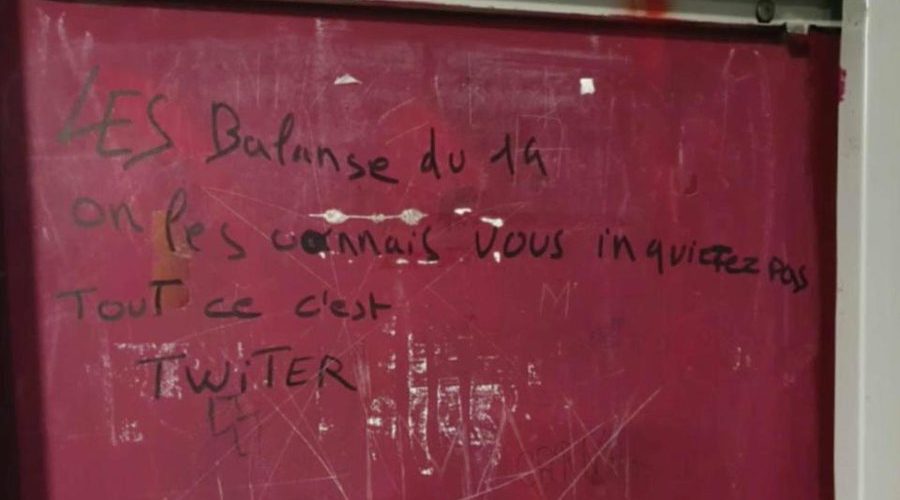 LES Balanse du 19
on les connais vous inquietez pas
TOUT ce c'est
TWiTER